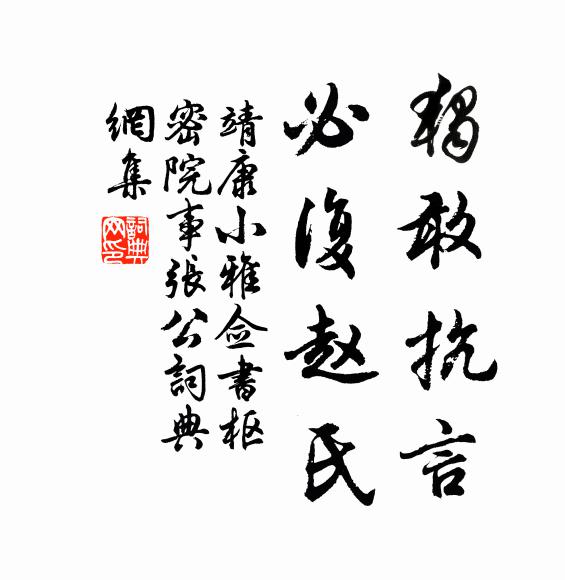 獨敢抗言
必復趙氏
靖康小雅佥書枢
密院事張公詞典
網集
詞典網印